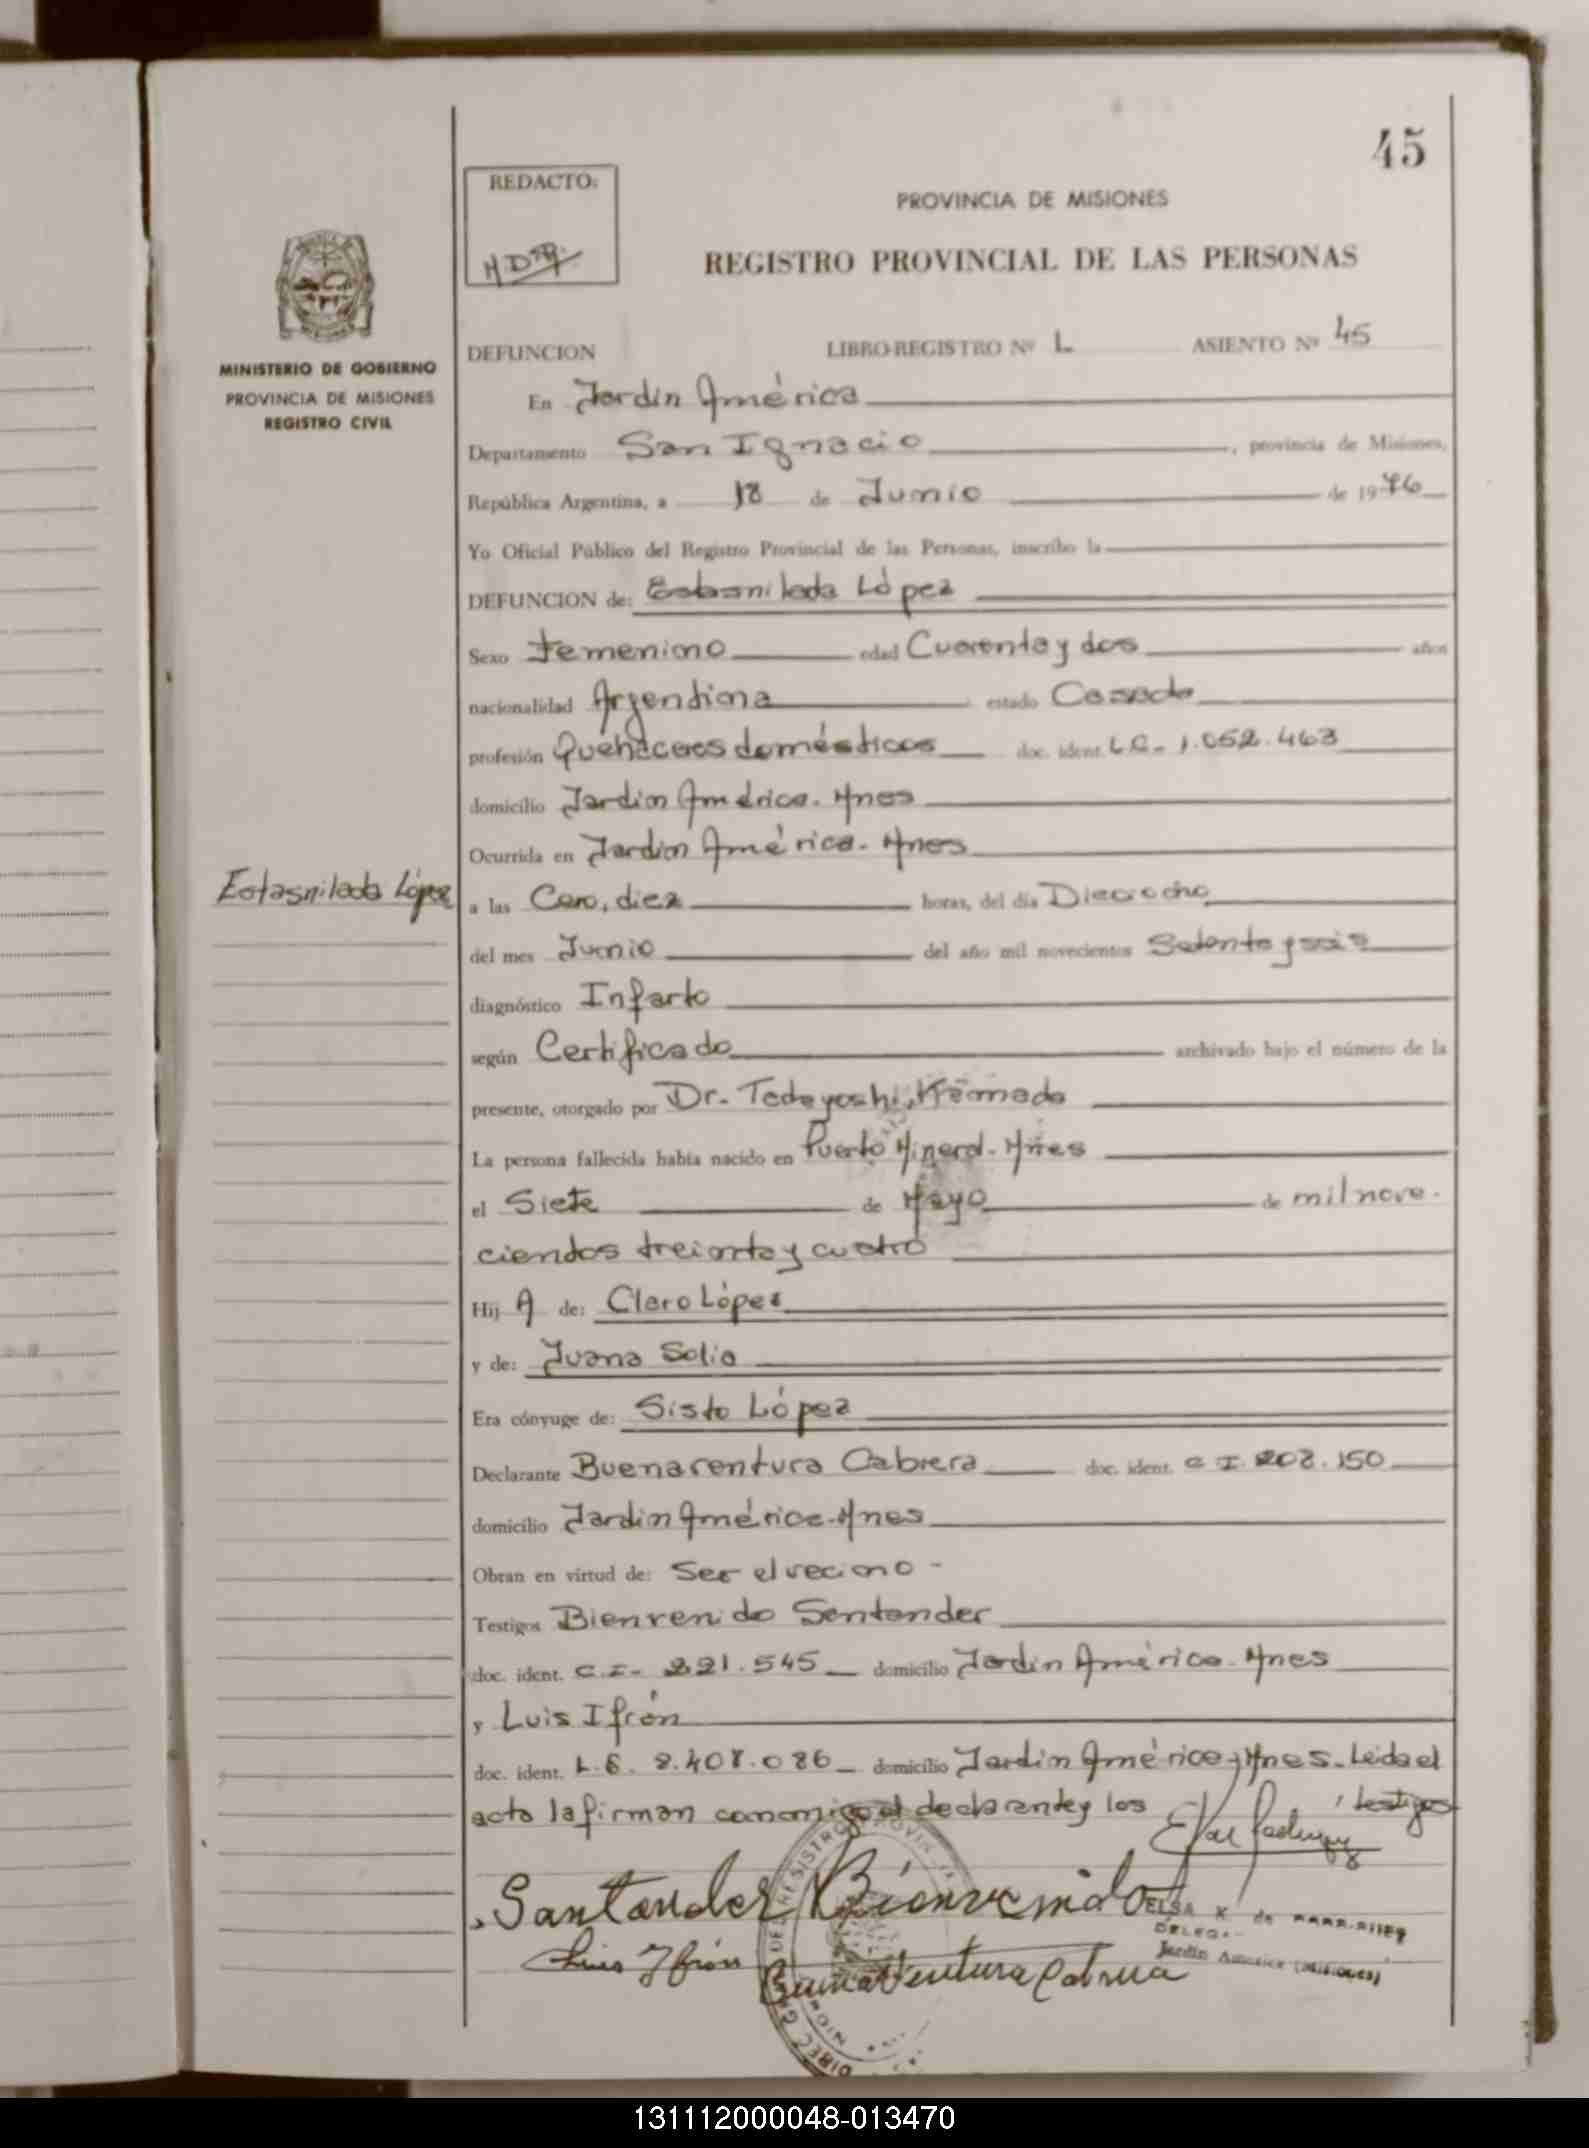 45
REDACTO:
PROVINCIA DE MISIONES
REGISTRO PROVINCIAL DE LAS PERSONAS
MINISTERIO DE GOBIERNO
PROVINCIA DE MISIONES
REGISTRO CIVIL
DEFUNCION LIBRO-REGISTRO Nº L ASIENTO Nº 45
En Jardín América
Departamento San Ignacio, provincia de Misiones,
República Argentina, a 18 de Junio de 1976
Yo Oficial Público del Registro Provincial de las Personas, inscribo la
DEFUNCION de: Estasnilada López
Sexo Femenino edad Cuarenta y dos años
nacionalidad Argentina estado Casada
profesión Quehaceres domésticos doc. ident. L.C. 1.052.463
domicilio Jardín América. Mnes
Ocurrida en Jardín América. Mnes
Estasnilada López
a las Cero, diez horas, del día Dieciocho
del mes Junio del año mil novecientos Setenta y seis
diagnóstico Infarto
según Certificado archivado bajo el número de la
presente, otorgado por Dr. Tadayoshi, Kamada
La persona fallecida había nacido en Puerto Mineral. Mnes
el Siete de Mayo de mil nove.
cientos treinta y cuatro
Hij A de: Claro López
y de: Juana Solis
Era cónyuge de: Sisto López
Declarante Buenaventura Cabrera doc. ident. C.I. 208.150
domicilio Jardín América. Mnes
Obran en virtud de: Ser el vecino -
Testigos Bienvenido Santander
doc. ident. C.I. 221.545 domicilio Jardín América. Mnes
y Luis Ifrán
doc. ident. L.E. 8.408.086 domicilio Jardín América, Mnes. Leida el
acta la firman conmigo el declarante y los testigos
Santander Bienvenido
ELSA K. de
DELEG.
Luis Ifrán
Jardín América (MISIONES)
Buenaventura Cabrera
131112000048-013470